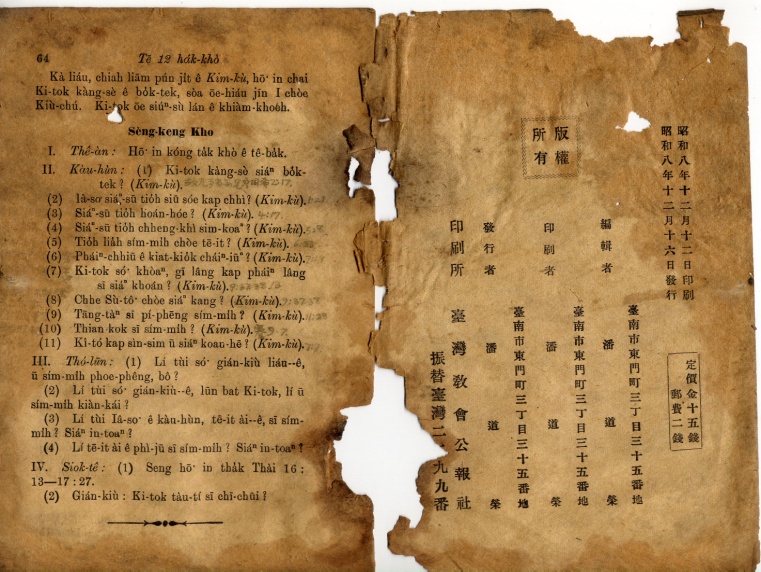 64 Tē 12 ha̍k-khò
Kà liáu, chiah liām pún ji̍t ê Kim-kù, hō͘ in chai
Ki-tok kàng-sè ê bo̍k-tek, sòa ōe-hiáu jīn I chòe
Kiù-chú. Ki-tok ōe siúⁿ-sù lán ê khiàm-khoeh.
Sèng-keng Kho
I. Thê-àn: Hō͘ in kóng ta̍k khò ê tê-ba̍k.
II. Kàu-hùn: (1) Ki-tok kàng-sè siáⁿ bo̍k-
tek? (Kim-kù).
(2) Iâ-so͘ siáⁿ-sū tio̍h siū sóe kap chhì? (Kim-kù).
(3) Siáⁿ-sū tio̍h hoán-hóe? (Kim-kù). 4:17
(4) Siáⁿ-sū tio̍h chheng-khì sim-koaⁿ? (Kim-kù).
(5) Tio̍h lia̍h sím-mi̍h chòe tē-it? (Kim-kù).
(6) Pháiⁿ-chhiū ê kiat-kio̍k cháiⁿ-iūⁿ? (Kim-kù).
(7) Ki-tok só͘ khòaⁿ, gî lâng kap pháiⁿ lâng
sī siáⁿ khoán? (Kim-kù).
(8) Chhe Sù-tô͘ chòe siáⁿ kang? (Kim-kù).
(9) Tāng-tàⁿ sī pí-phēng sím-mi̍h? (Kim-kù).
(10) Thian-kok sī sím-mi̍h? (Kim-kù).
(11) Ki-tó kap sìn-sim ū siáⁿ koan-hē? (Kim-kù).
III. Thó-lūn: (1) Lí tùi só͘ gián-kiù liáu--ê,
ū sím-mi̍h phoe-phêng, bô?
(2) Lí tùi só͘ gián-kiù--ê, lūn bat Ki-tok, lí ū
sím-mi̍h kiàn-kái?
(3) Lí tùi Iâ-so͘ ê kàu-hùn, tē-it ài--ê, sī sím-
mi̍h? Siáⁿ in-toaⁿ?
(4) Lí tē-it ài ê phì-jū sī sím-mi̍h? Siáⁿ in-toaⁿ?
IV. Siok-tê: (1) Seng hō͘ in tha̍k Thài 16:
13—17:27.
(2) Gián-kiù: Ki-tok tàu-tí sī chī-chūi?
昭和八年十二月十二日印刷
昭和八年十二月十六日發行
定價金十五錢
郵費二錢
版權
所有
臺南市東門町三丁目三十五番地
編輯者 潘道榮
臺南市東門町三丁目三十五番地
印刷者 潘道榮
臺南市東門町三丁目三十五番地
發行者 潘道榮
印刷所 臺灣教會公報社
振替臺灣二九九番